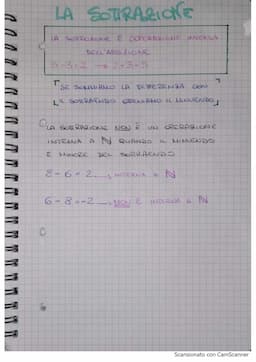 LA SOTTRAZIONE
LA SOTTRAZIONE È L'OPERAZIONE INVERSA
DELL'ADDIZIONE
5-3=2 → 2+3=5
SE SOMMIAMO LA DIFFERENZA CON
IL SOTTRAENDO OTTENIAMO IL MINUENDO
LA SOTTRAZIONE NON È UN OPERAZIONE
INTERNA A ℕ QUANDO IL MINUENDO
È MINORE DEL SOTTRAENDO
8-6=2 → INTERNA A ℕ
6-8=-2 → NON È INTERNA A ℕ
Scansionato con CamScanner